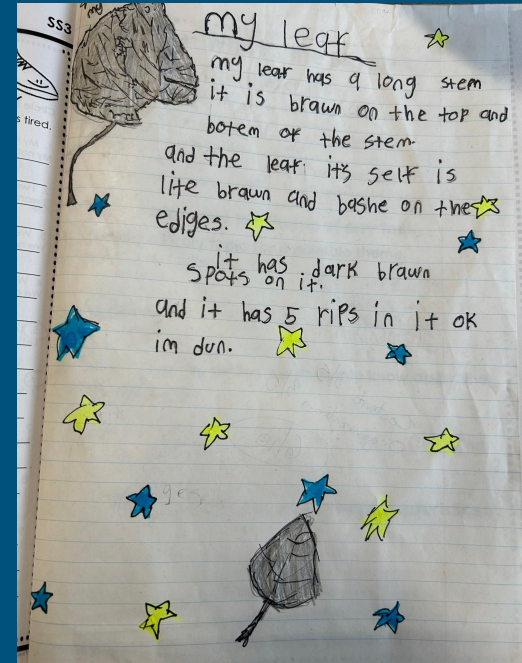 SS3
my
s tired.
my leaf
my leaf has a long stem
it is brawn on the top and
botem of the stem.
and the leaf it's self is
lite brawn and bashe on the
ediges.
it has dark brawn
spots on it.
and it has 5 rips in it ok
im dun.